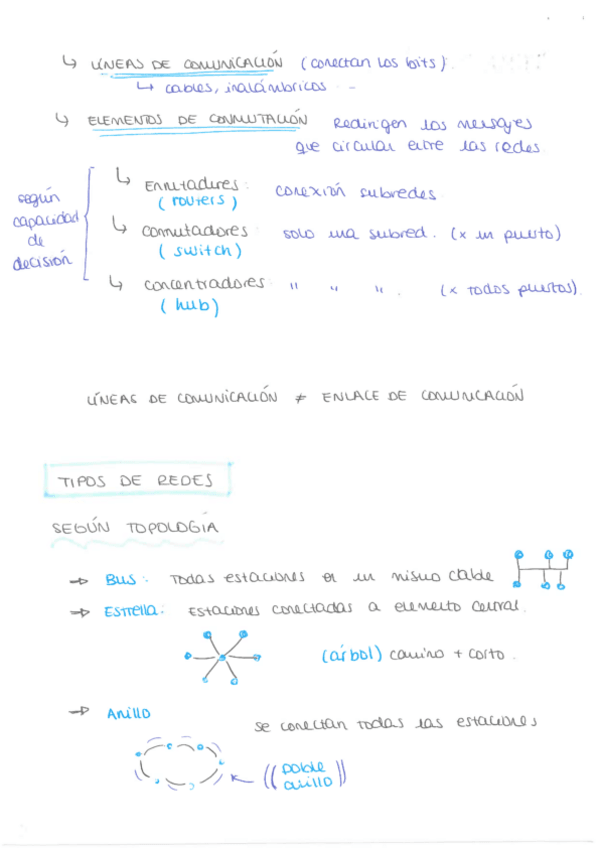 ↳ LÍNEAS DE COMUNICACIÓN (conectan los bits)
↳ cables, inalámbricos
↳ ELEMENTOS DE CONMUTACIÓN Redirigen los mensajes
que circulan entre las redes.
según capacidad de decisión
↳ Enrutadores: conexión subredes.
(routers)
↳ conmutadores: solo una subred. (x un puerto)
(switch)
↳ concentradores: " " ". (x todos puertos).
(hub)
LÍNEAS DE COMUNICACIÓN ≠ ENLACE DE COMUNICACIÓN
TIPOS DE REDES
SEGÚN TOPOLOGÍA
→ Bus: Todas estaciones en un mismo cable
→ Estrella: Estaciones conectadas a elemento central.
(árbol) camino + corto.
→ Anillo
se conectan todas las estaciones
((Doble
anillo))